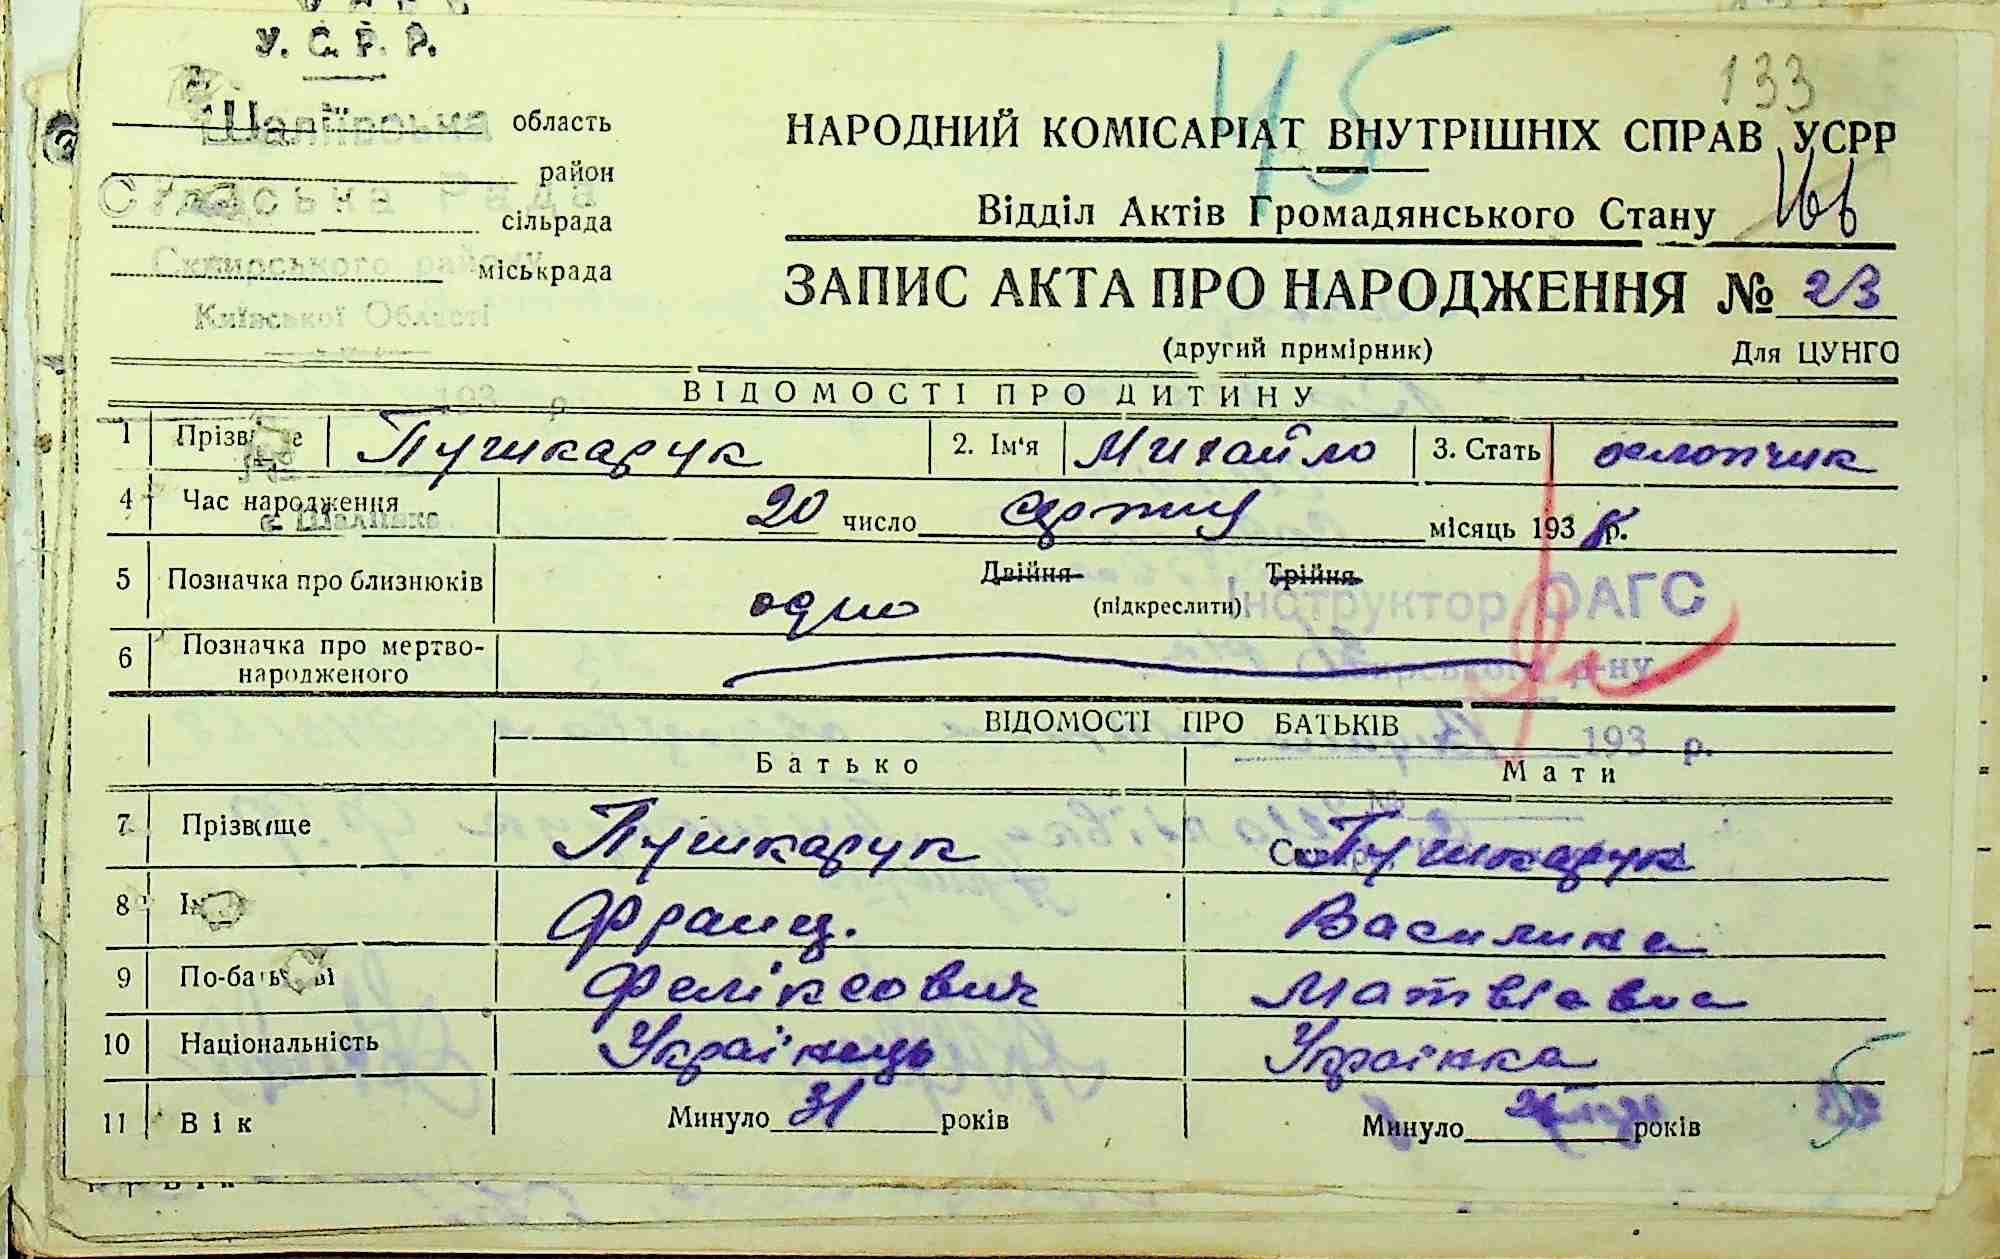 У. С. Р. Р.
133
45
Шаліївська область
НАРОДНИЙ КОМІСАРІАТ ВНУТРІШНІХ СПРАВ УСРР
район
Сільська Рада
Відділ Актів Громадянського Стану
сільрада
Сквирського району
міськрада
ЗАПИС АКТА ПРО НАРОДЖЕННЯ № 23
Київської Області
(другий примірник) Для ЦУНГО
193 р.
ВІДОМОСТІ ПРО ДИТИНУ
1 Прізвище Пушкарук 2. Ім'я Михайло 3. Стать хлопчик
4 Час народження 20 число місяць 193 р.
с. Шаліївка
5 Позначка про близнюків одно Двійня Трійня
(підкреслити)
Інструктор ОАГС
6 Позначка про мертво-
народженого
р-ну
ВІДОМОСТІ ПРО БАТЬКІВ
193 р.
Батько Мати
7 Прізвище Пушкарук Пушкарук
8 Франц. Василина
9 По-батькові Феліксович Матвіавна
10 Національність Українець Українка
11 Вік Минуло 31 років Минуло років